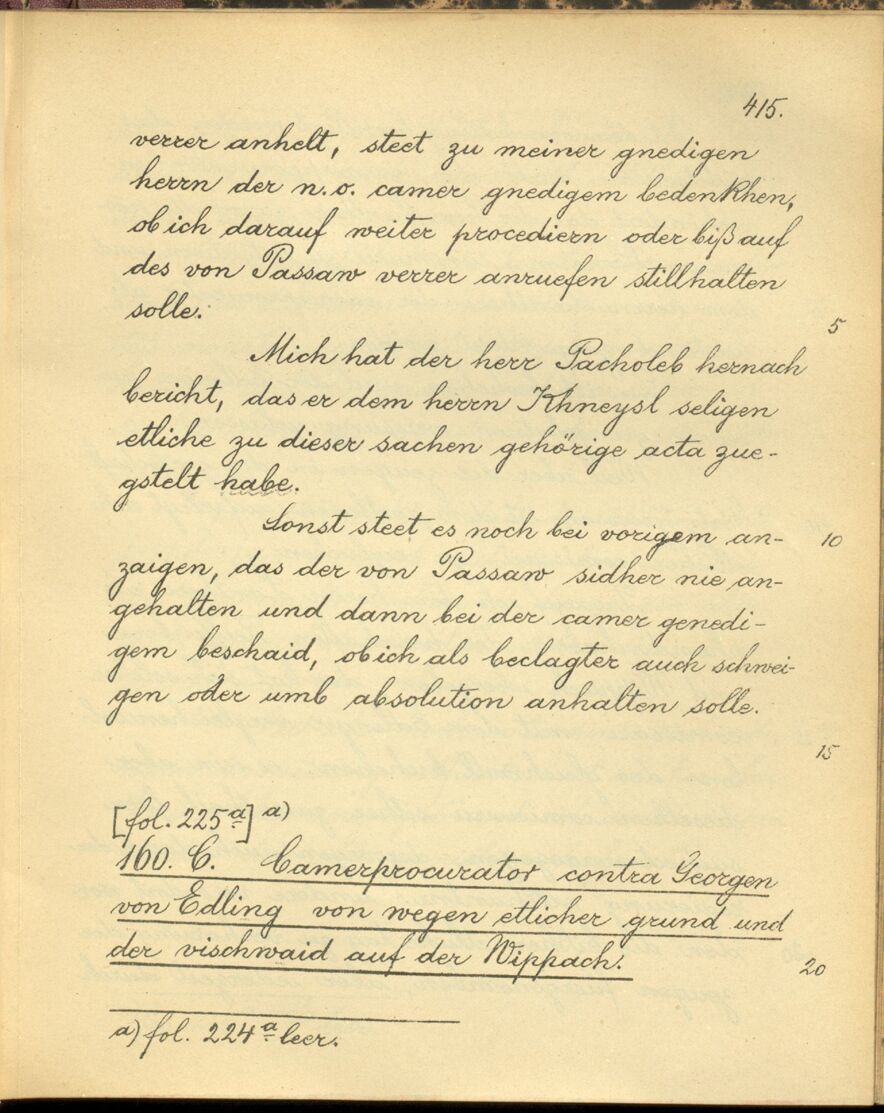 415.
verrer anhelt, steet zu meiner gnedigen
herrn der n.o. camer gnedigem bedenkhen,
ob ich darauf weiter procediern oder biß auf
des von Passaw verrer anruefen stillhalten
solle.
5
Mich hat der herr Pacholeb hernach
bericht, das er dem herrn Khneysl seligen
etliche zu dieser sachen gehörige acta zue-
gstelt habe.
Sonst steet es noch bei vorigem an-
10
zaigen, das der von Passaw sidher nie an-
gehalten und dann bei der camer genedi-
gem beschaid, ob ich als beclagter auch schwei-
gen oder umb absolution anhalten solle.
15
[fol. 225a] a)
160. C. Camerprocurator contra Georgen
von Edling von wegen etlicher grund und
der vischwaid auf der Wippach.
20
a) fol. 224a leer.